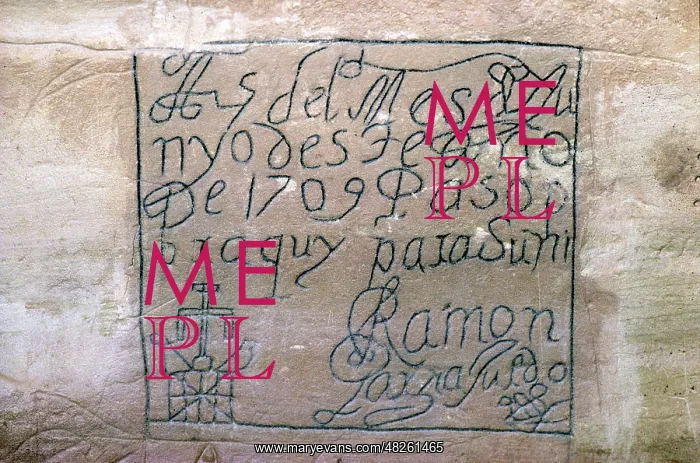 A 5 del Mes de Ju
nyo deste
De 1709 Paso
por aquy para Suñi
Ramon
Garzia Jurado
ME
PL
ME
PL
www.maryevans.com/48261465